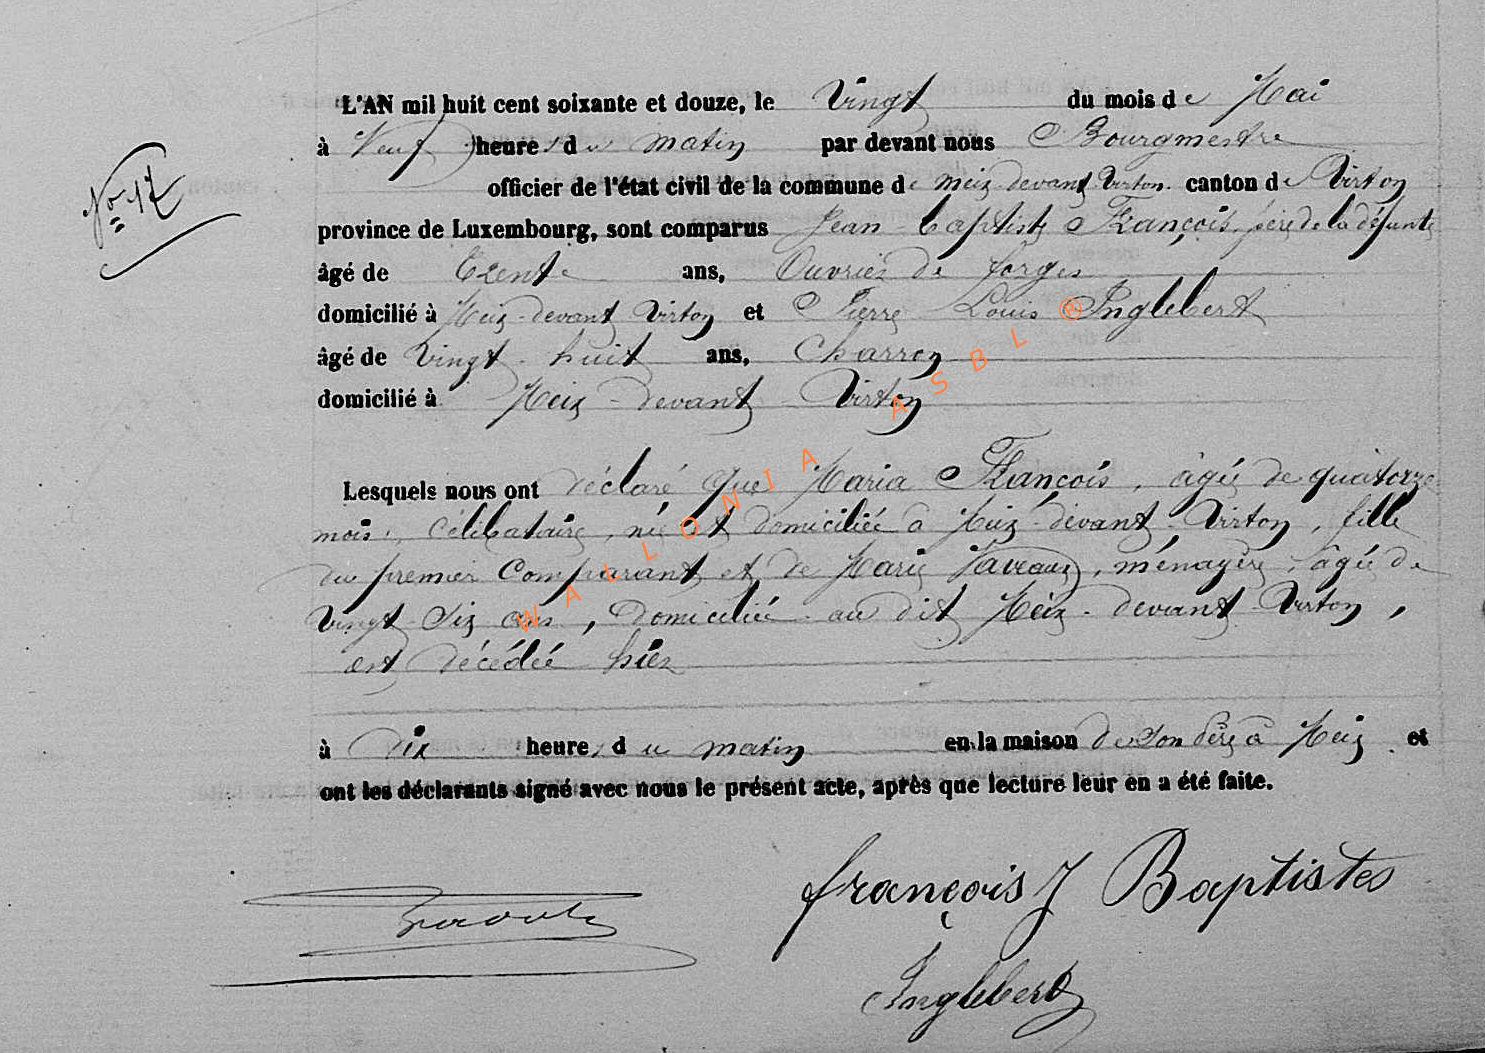 No 17
L'AN mil huit cent soixante et douze, le Vingt du mois de Mai
à Neuf heures du matin par devant nous Bourgmestre
officier de l'état civil de la commune de Meix-devant-Virton canton de Virton
province de Luxembourg, sont comparus Jean-baptiste François, père de la défunte
âgé de trente ans, Ouvrier de forges
domicilié à Meix-devant Virton et Pierre Louis Inglebert
âgé de Vingt-huit ans, Charron
domicilié à Meix-devant-Virton
Lesquels nous ont déclaré que Maria François, âgée de quatorze
mois, célibataire, née et domiciliée à Meix-devant-Virton, fille
du premier Comparant et de Marie Javeaux, ménagère, âgée de
Vingt-Six ans, Domiciliée au dit Meix-devant-Virton,
est décédée hier
à dix heures du matin en la maison de Son Père à Meix et
ont les déclarants signé avec nous le présent acte, après que lecture leur en a été faite.
françois J Baptistes
Inglebert
WALLONIA ASBL ®